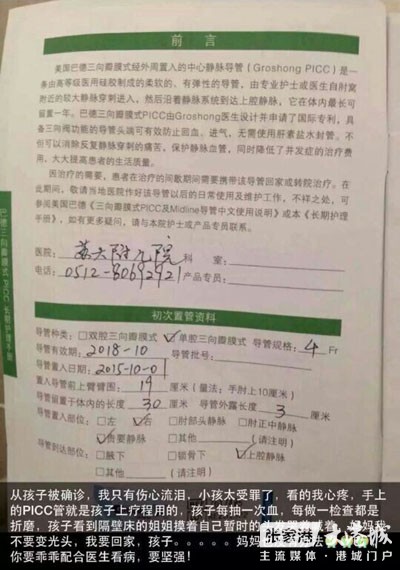 前 言
美国巴德三向瓣膜式经外周置入的中心静脉导管（Groshong PICC）是一
条由高等级医用硅胶制成的柔软的、有弹性的导管，由专业护士或医生自肘窝
附近的较大静脉穿刺进入，然后沿着静脉系统到达上腔静脉，它在体内最长可
留置一年。巴德三向瓣膜式PICC由Groshong医生设计并申请了国际专利，具
备三向阀功能的导管头端可有效防止回血、进气，无需使用肝素盐水封管。不
但可以消除反复静脉穿刺的痛苦，保护静脉血管，同时降低了并发症的治疗费
用，大大提高患者的生活质量。
因治疗的需要，患者在治疗的间歇期间需要携带该导管回家或转院治疗。在
此期间，敬请当地医院作好该导管以后的日常使用及维护工作，不祥之处，可
参阅美国巴德《三向瓣膜式PICC及Midline导管中文使用说明》或本《长期护理
手册》，如有更多疑问，请与本院护士或产品专员联系。
医院：苏大附儿院 科 室：
电话：0512-80692921 产品专员：
巴德三向瓣膜式 PICC 长期护理手册
初次置管资料
导管种类：□双腔三向瓣膜式 ☑单腔三向瓣膜式 导管规格：4 Fr
导管有效期：2018-10 导管批号：
导管置入日期：2015-10-01
置入导管前上臂臂围：19 厘米（量法：手肘上10厘米）
导管留置于体内的长度 30 厘米 导管外露长度 3 厘米
导管置入部位：□左 ☑右 □肘部头静脉 □肘正中静脉
☑贵要静脉 □其他 （请注明）
导管到达部位：□腋下 □锁骨下 ☑上腔静脉
□其他 （请注明）
从孩子被确诊，我只有伤心流泪，小孩太受罪了，看的我心疼，手上
的PICC管就是孩子上疗程用的，孩子每抽一次血，每做一检查都是
折磨，孩子看到隔壁床的姐姐摸着自己暂时的
不要变光头，我要回家，孩子。。。。。妈妈
你要乖乖配合医生看病，要坚强！
主流媒体·港城门户